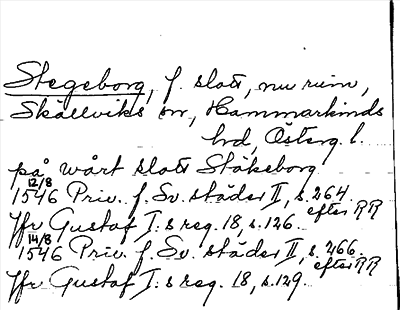 Stegeborg, f. slott, nu ruin,
Skällviks sn, Hammarkinds
hd, Österg. l.
på wårt slott Stäkeborg
12/8
1546 Priv. f. Sv. städer II, s. 264.
efter RR
Jfr Gustaf I:s reg. 18, s. 126.
14/8
1546 Priv. f. Sv. städer II, s. 266.
efter RR
Jfr Gustaf I:s reg. 18, s. 129.